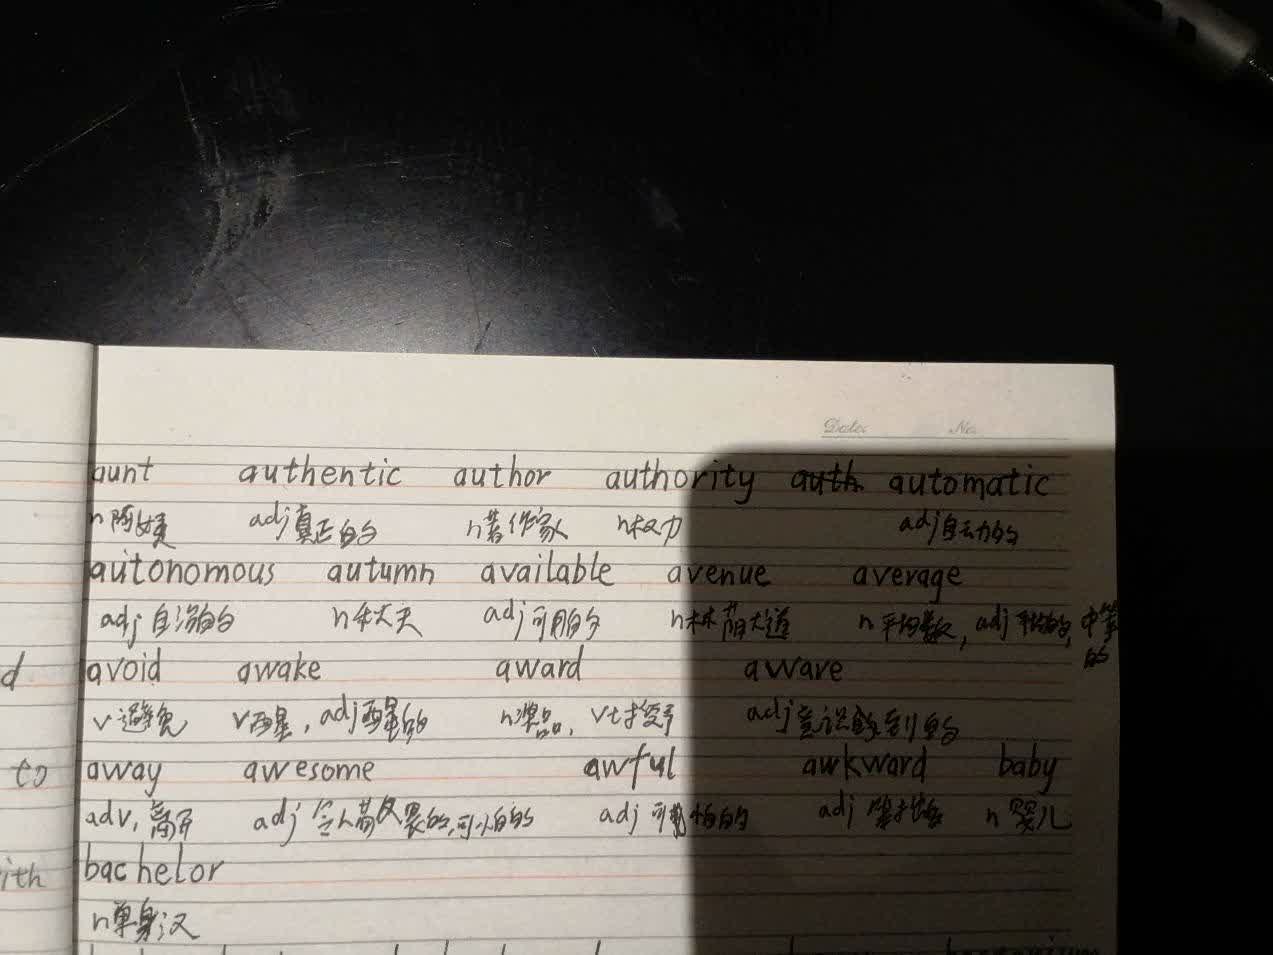 Date: No.
aunt authentic author authority auth automatic
n阿姨 adj真正的 n著作家 n权力 adj自动的
autonomous autumn available avenue average
adj自治的 n秋天 adj可用的 n林荫大道 n平均数, adj平均的, 中等
的
d avoid awake award aware
v避免 v醒, adj醒的 n奖品, vt授予 adj意识到的
to away awesome awful awkward baby
adv, 离开 adj令人敬畏的,可怕的 adj可怕的 adj n婴儿
ith bachelor
n单身汉